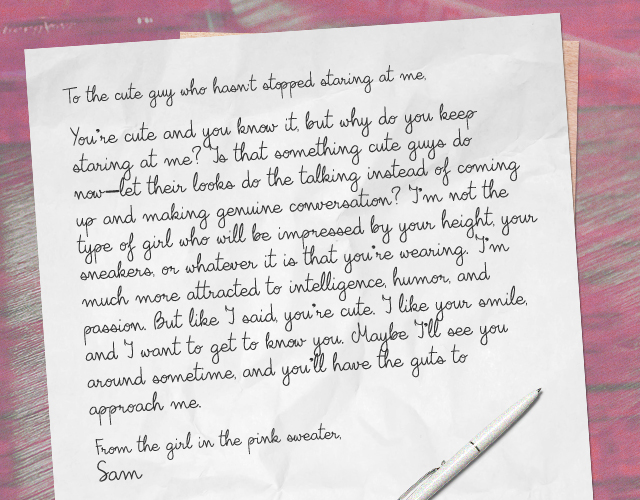 To the cute guy who hasn't stopped staring at me,
You're cute and you know it, but why do you keep
staring at me? Is that something cute guys do
now—let their looks do the talking instead of coming
up and making genuine conversation? I'm not the
type of girl who will be impressed by your height, your
sneakers, or whatever it is that you're wearing. I'm
much more attracted to intelligence, humor, and
passion. But like I said, you're cute. I like your smile,
and I want to get to know you. Maybe I'll see you
around sometime, and you'll have the guts to
approach me.
From the girl in the pink sweater,
Sam